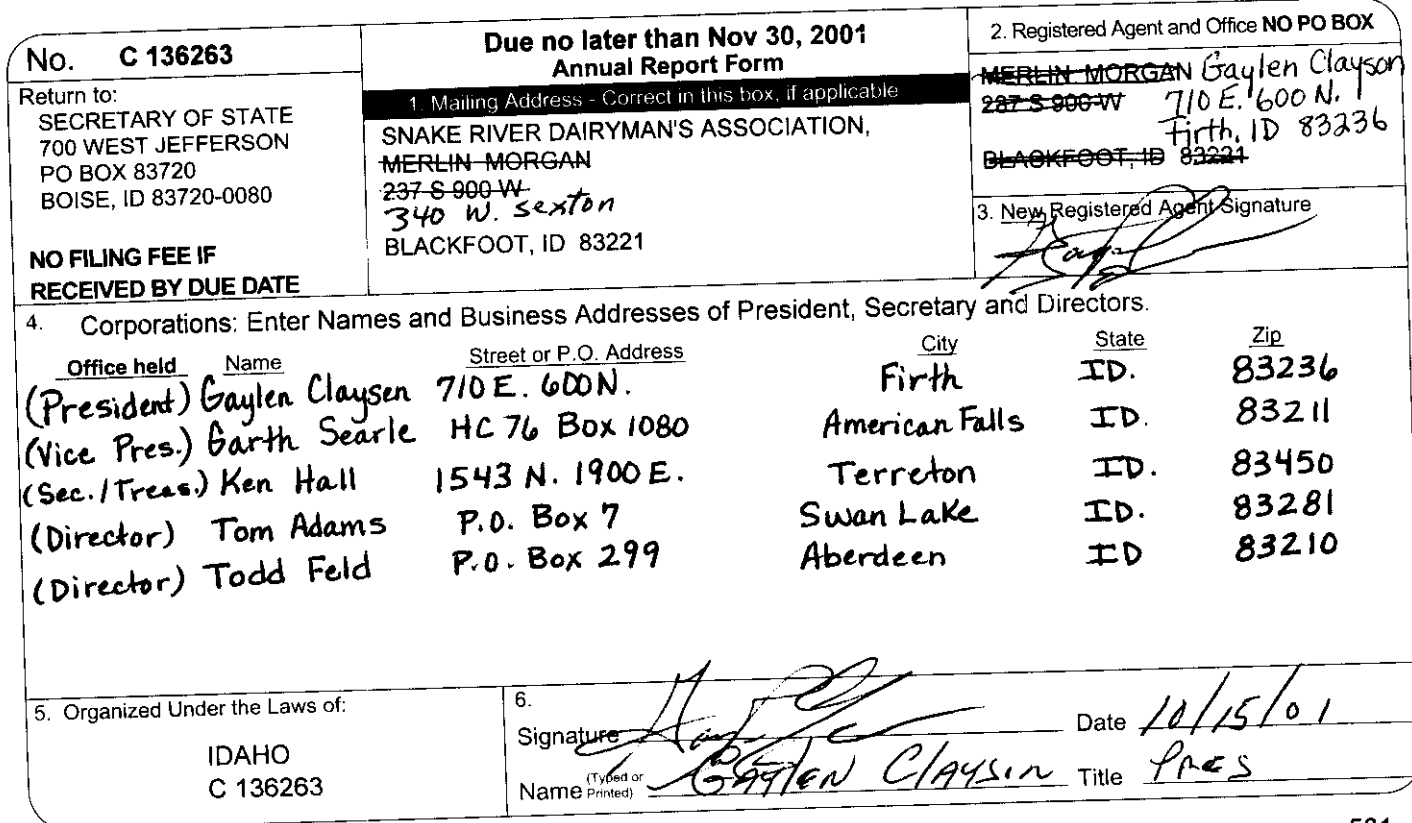 No. C 136263
Return to:
SECRETARY OF STATE
700 WEST JEFFERSON
PO BOX 83720
BOISE, ID 83720-0080
NO FILING FEE IF
RECEIVED BY DUE DATE
Due no later than Nov 30, 2001
Annual Report Form
1. Mailing Address - Correct in this box, if applicable
SNAKE RIVER DAIRYMAN'S ASSOCIATION,
MERLIN MORGAN
237 S 900 W
340 W. Sexton
BLACKFOOT, ID 83221
2. Registered Agent and Office NO PO BOX
MERLIN MORGAN Gaylen Clayson
237 S 900 W 710 E. 600 N.
Firth, ID 83236
BLACKFOOT, ID 83221
3. New Registered Agent Signature
4. Corporations: Enter Names and Business Addresses of President, Secretary and Directors.
Office held Name Street or P.O. Address City State Zip
(President) Gaylen Claysen 710 E. 600 N. Firth ID. 83236
(Vice Pres.) Garth Searle HC 76 Box 1080 American Falls ID. 83211
(Sec./Treas.) Ken Hall 1543 N. 1900 E. Terreton ID. 83450
(Director) Tom Adams P.O. Box 7 Swan Lake ID. 83281
(Director) Todd Feld P.O. Box 299 Aberdeen ID 83210
5. Organized Under the Laws of:
IDAHO
C 136263
6.
Signature Date 10/15/01
Name (Typed or Printed) GAYlEN ClAYSIN Title PRES